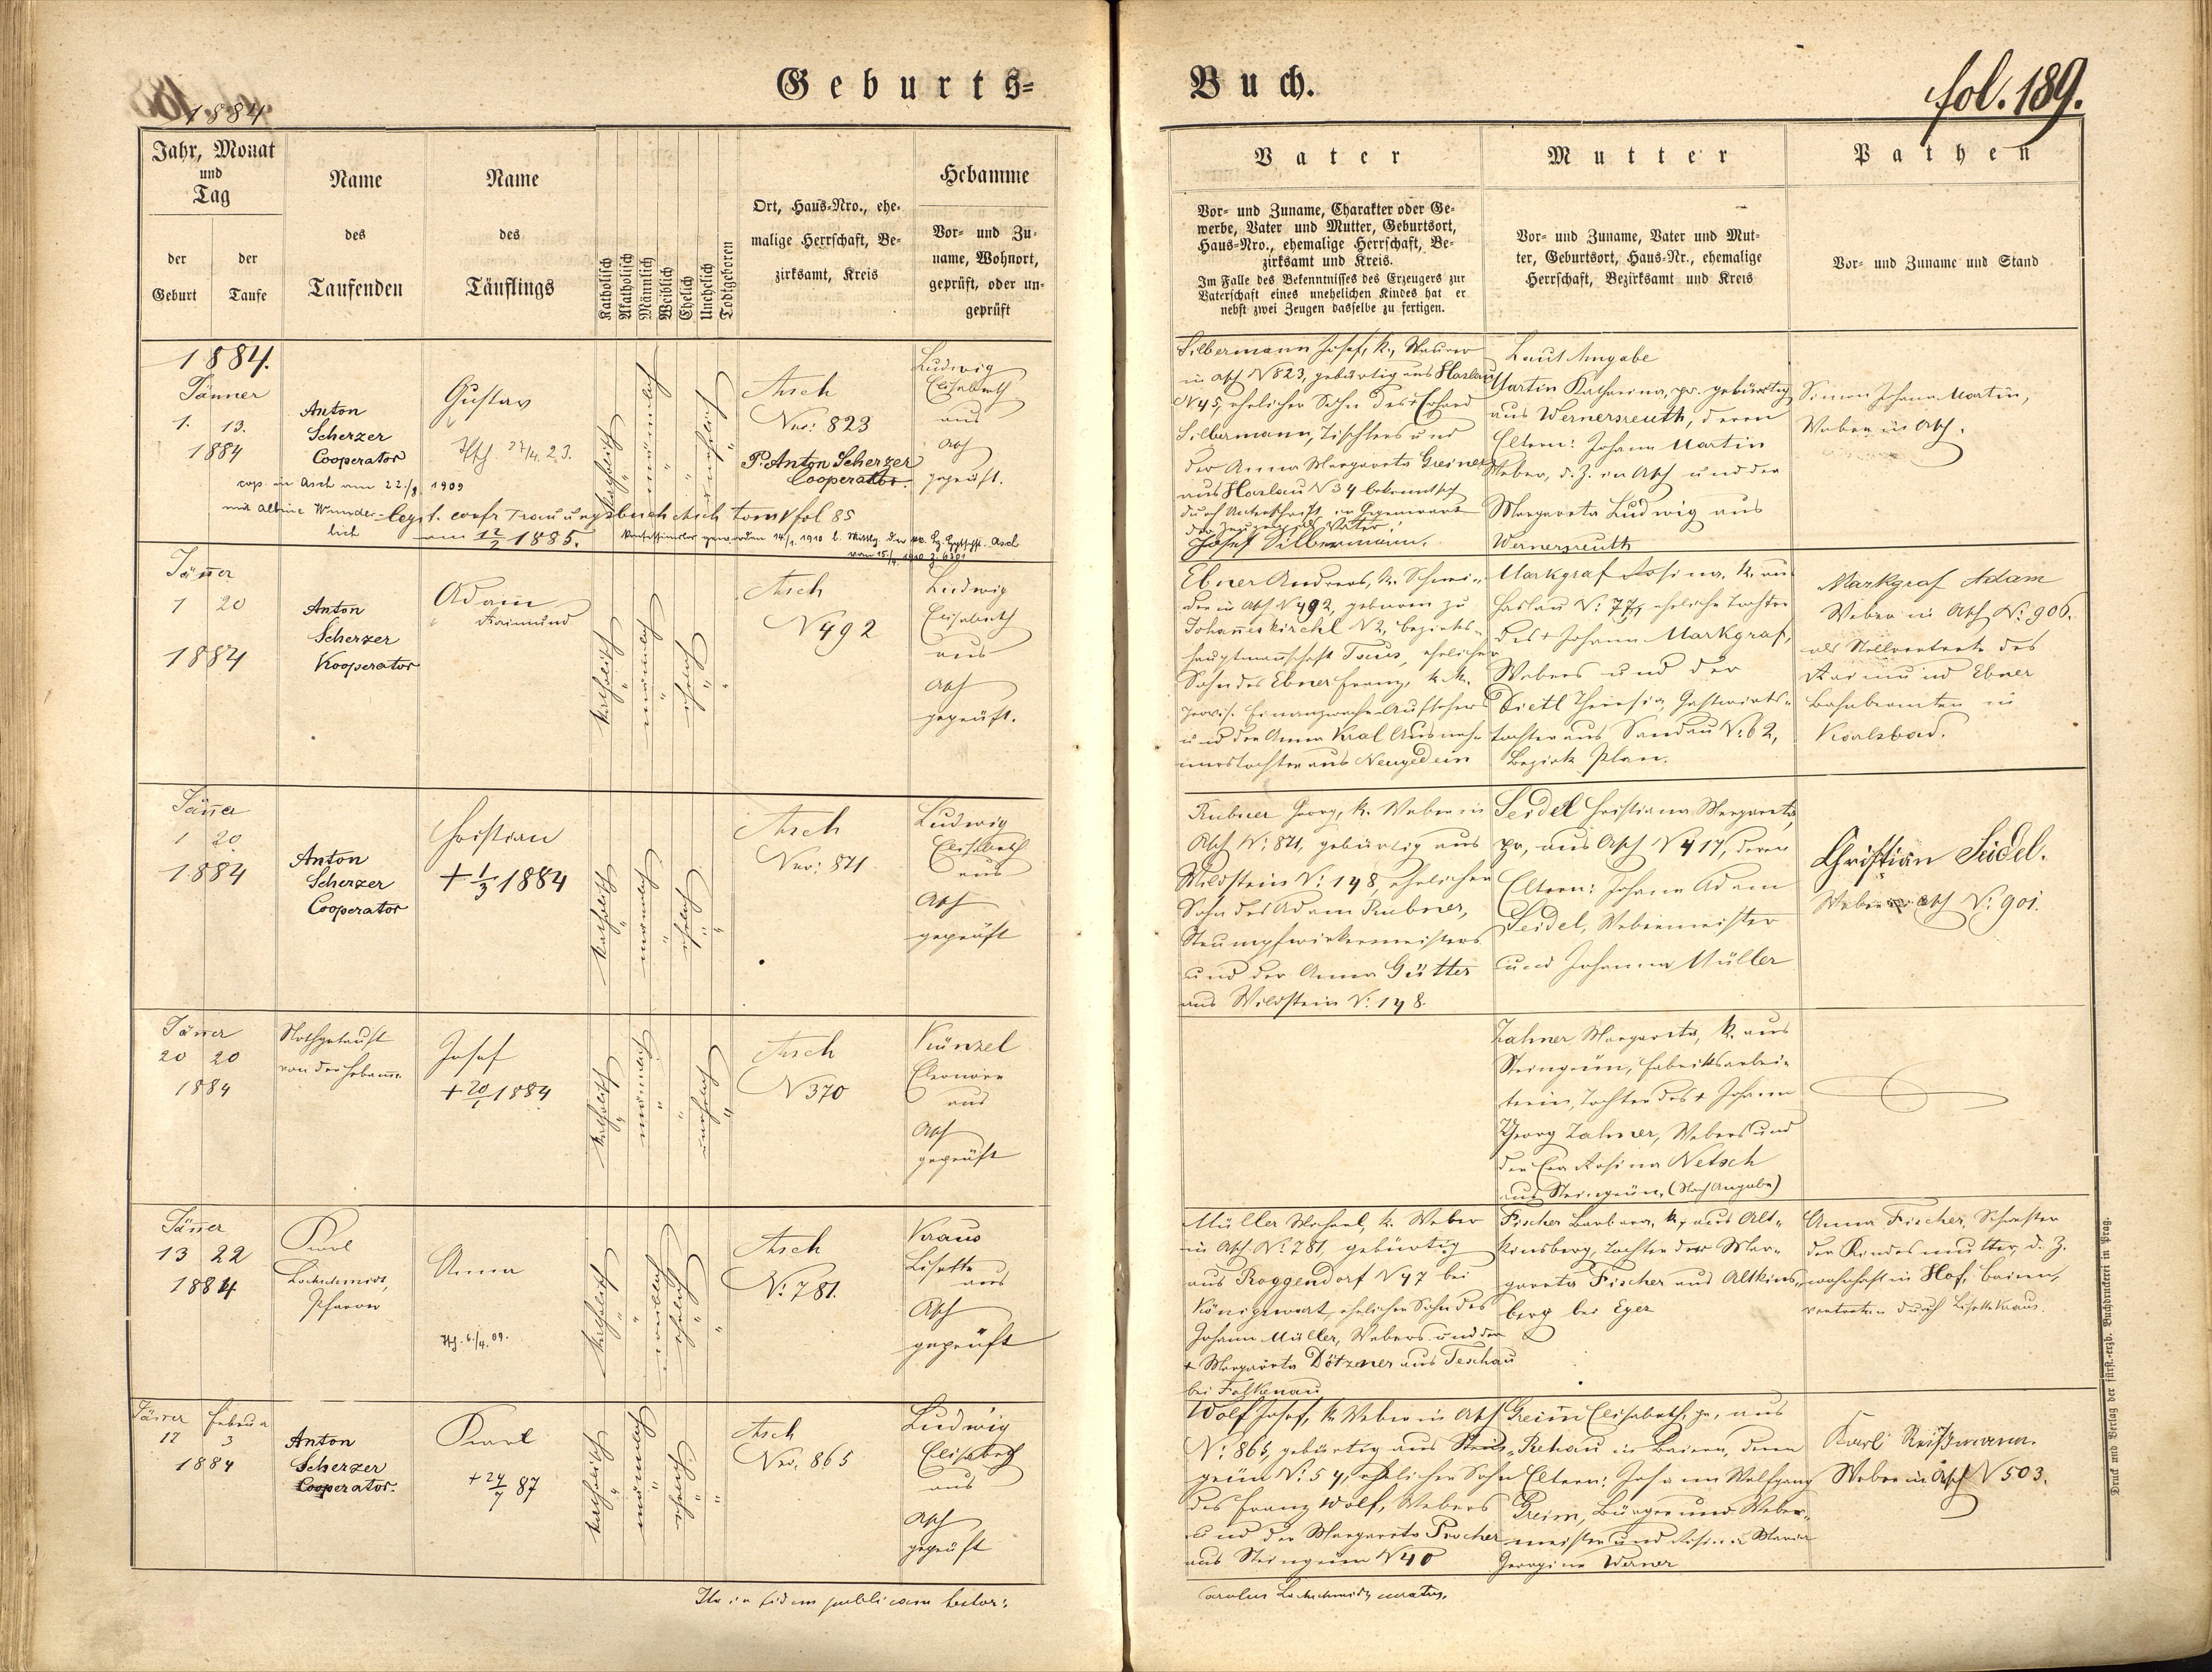 1884.
Geburts=
Buch.
fol. 189.
Jahr, Monat
und
Tag
der
Geburt
der
Taufe
Name
des
Taufenden
Name
des
Täuflings
Katholisch
Akatholisch
Männlich
Weiblich
Ehelich
Unehelich
Todtgeboren
Ort, Haus-Nro., ehe-
malige Herrschaft, Be-
zirksamt, Kreis
Hebamme
Vor- und Zu-
name, Wohnort,
geprüft, oder un-
geprüft
Vater
Vor- und Zuname, Charakter oder Ge-
werbe, Vater und Mutter, Geburtsort,
Haus-Nro., ehemalige Herrschaft, Be-
zirksamt und Kreis.
Im Falle des Bekenntnisses des Erzeugers zur
Vaterschaft eines unehelichen Kindes hat er
nebst zwei Zeugen dasselbe zu fertigen.
Mutter
Vor- und Zuname, Vater und Mut-
ter, Geburtsort, Haus-Nr., ehemalige
Herrschaft, Bezirksamt und Kreis
Pathen
Vor- und Zuname und Stand
1884.
Jänner
1. 13.
1884
Anton
Scherzer
Cooperator
Gustav
cop. in Asch am 22./8. 1909
mit Albine Wunder-
lich
legit. confr Trauungsbuch Asch tom V fol 85
am 12/2 1885.
katholisch
männlich
unehelich
Asch
Nro: 823
P. Anton Scherzer
Cooperator.
Ludwig
Elisabeth
aus
Asch
geprüft.
Silbermann Josef, k., Maurer
in Asch N 823, gebürtig aus Haslau
N 45, ehelicher Sohn des + Erhard
Silbermann, Tischlers und
der Anna Margareta Greiner
aus Haslau N 34 bekennt sich
durch Unterschrift in Gegenwart
der Zeugen als Vater:
Josef Silbermann.
Laut Angabe
Martin Katharina, pr. gebürtig
aus Wernersreuth, deren
Eltern: Johann Martin
Weber, d. Z. in Asch und der
Margareta Ludwig aus
Wernersreuth
Simon Johann Martin,
Weber in Asch.
Jänner
1 20
1884
Anton
Scherzer
Kooperator
Adam
Raimund
katholisch
männlich
ehelich
Asch
N 492
Ludwig
Elisabeth
aus
Asch
geprüft.
Ebner Andreas, k. Schmi-
der in Asch N 492, geboren zu
Johanniskirchl N 2, Bezirks-
hauptmannschaft Taus, ehelicher
Sohn des Ebner Franz, k. k.
provis. Finanzwach-Aufsehers
und der Anna Kral Ausneh-
merstochter aus Neugedein
Markgraf Rosina, k. aus
Haslau N: 77, eheliche Tochter
des + Johann Markgraf,
Webers und der
Dietl Theresia, Gastwirts-
tochter aus Sandau N: 62,
Bezirk Plan.
Markgraf Adam
Weber in Asch N: 906.
als Stellvertreter des
Raimund Ebner
Bahnbeamten in
Karlsbad.
Jänner
1 20
1884
Anton
Scherzer
Cooperator
Christian
+ 1/3 1884
katholisch
männlich
ehelich
Asch
Nro: 871
Ludwig
Elisabeth
aus
Asch
geprüft
Rubner Georg, k. Weber in
Asch N: 871, gebürtig aus
Wildstein N: 148, ehelicher
Sohn des Adam Rubner,
Strumpfwirkermeisters
und der Anna Gütter
aus Wildstein N: 148.
Seidel Christiana Margareta,
pr, aus Asch N 417, deren
Eltern: Johann Adam
Seidel, Webermeister
und Johanna Müller
Christian Seidel.
Weber in Asch N: 901.
Jänner
20 20
1884
Nothgetauft
von der Hebamme
Josef
+ 20/1 1884
katholisch
männlich
unehelich
Asch
N 370
Künzel
Eleonore
aus
Asch
geprüft
Zahner Margareta, k. aus
Steingrün, Fabriksarbei-
terin, Tochter des + Johann
Georg Zahner, Webers und
der Eva Rosina Netsch
aus Steingrün. (Nach Angabe)
Jänner
13 22
1884
Karl
Lochschmidt,
Pfarrer
Anna
katholisch
weiblich
ehelich
Asch
N: 781.
Kraus
Lisette
aus
Asch
geprüft
Müller Michael, k. Weber
in Asch N: 781, gebürtig
aus Roggendorf N 47 bei
Königswart, ehelicher Sohn des
Johann Müller, Webers und der
+ Margareta Dötzner aus Teschau
bei Falkenau
Fischer Barbara, k., aus Alt-
kinsberg, Tochter der Mar-
gareta Fischer aus Altkins-
berg bei Eger
Anna Fischer, Schwester
der Kindesmutter, d. Z.
wohnhaft in Hof, Baiern,
vertreten durch Lisette Kraus.
Jänner Februar
12 3
1884
Anton
Scherzer
Cooperator.
Karl
+ 24/7 87
katholisch
männlich
ehelich
Asch
Nro. 865
Ludwig
Elisabeth
aus
Asch
geprüft
Wolf Josef, k. Weber in Asch
N: 865, gebürtig aus Stein-
grün N: 54, ehelicher Sohn
des Franz Wolf, Webers
und der Margareta Procher
aus Steingrün N 40
Greim Elisabeth, pr., aus
Rehau in Baiern, deren
Eltern: Johann Wolfgang
Greim, Bürger und Weber-
meister und Rosina Maria
Georgine Werner
Karl Reißmann.
Weber in Asch N 503.
Ita in fidem publicam testor:
Carolus Lochschmidt, curatus.
Druck und Verlag der fürst.-erzb. Buchdruckerei in Prag.